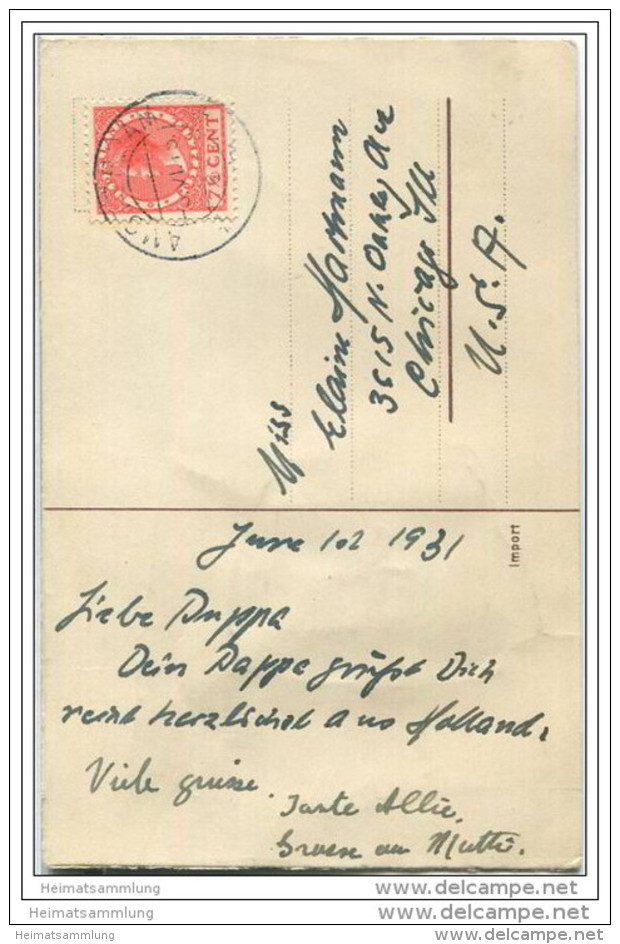 7½ CENT
Miss
Elaine Hartmann
3615 N. Oakley Ave
Chicago Ill
U. S. A.
Import
June 1st 1931
Liebe Puppa
Dein Pappa grüßt Dich
recht herzlichst aus Holland.
Viele grüsse.
Tante Allie.
Grüsse an Mutti.
Heimatsammlung
www.delcampe.net
Heimatsammlung
www.delcampe.net
Heimatsammlung
www.delcampe.net